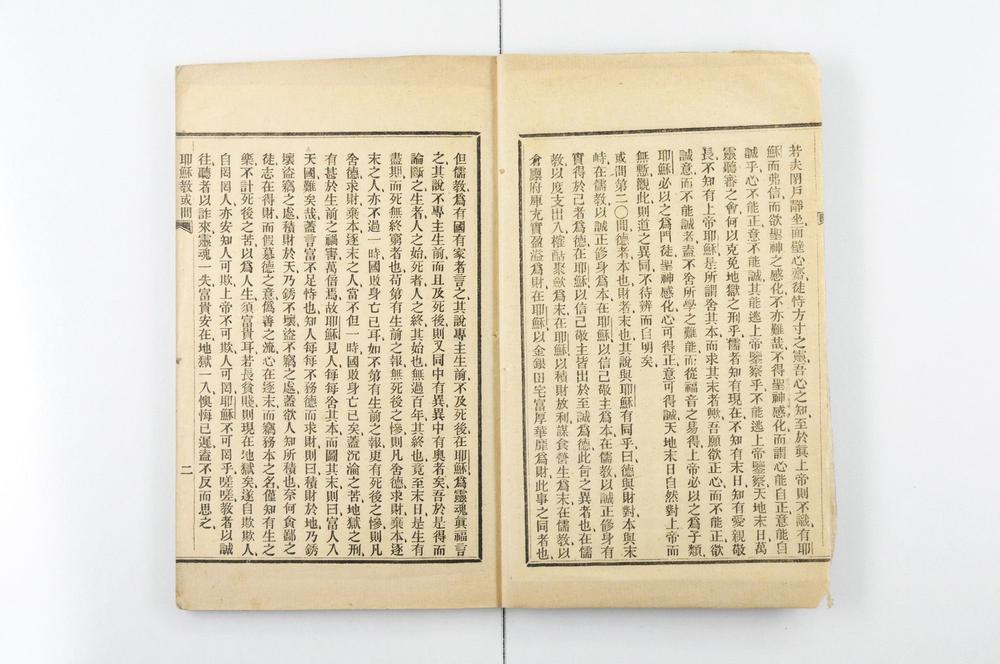 若夫閉戶歸坐、面壁心齋、徒恃方寸之靈、吾心之知、至於眞上帝則不識、有耶
穌而弗信、而欲聖神之感化、不亦難哉、不得聖神感化、而謂心能自正、意能自
誠乎、心不能正、意不能誠、其能逃上帝鑒察乎、不能逃上帝鑒察、天地末日、萬
靈聽審之會、何以克免地獄之刑乎、儒者知有現在、不知有末日、知有愛親敬
長、不知有上帝耶穌、是所謂舍其本而求其末者歟、吾願欲正心而不能正、欲
誠意而不能誠者、盍不舍所學之難能、而從福音之易得、上帝必以之爲子類、
耶穌必以之爲門徒、聖神感化、心可得正、意可得誠、天地末日、自然對上帝而
無慚、觀此則道之異同、不待辨而自明矣、
或問第二〇間德者本也、財者末也、其說與耶穌有同乎、曰德與財對、本與末
峙、在儒教以誠正修身爲本、在耶穌以信己敬主爲本、在儒教以誠正修身有
實得於己者爲德、在耶穌以信己敬主、皆出於至誠爲德、此言之異者也、在儒
教以度支出入、榷酤聚歛爲末、在耶穌以積財放利、謀食營生爲末、在儒教以
倉廩府庫、充實盈溢爲財、在耶穌以金銀田宅、富厚華靡爲財、此事之同者也、
但儒教爲有國有家者言之、其說專主生前、不及死後、在耶穌爲靈魂眞福言
之、其說不專主生前、而且及死後、則又同中有異、異中有奧者矣、吾於是得而
論斷之、生者人之始、死者人之終、其始也無過百年、其終也竟至末日、是生有
盡期、而死無終窮者也、苟第有生前之報、無死後之慘、則凡舍德求財、棄本逐
末之人、亦不過一時國敗身亡已耳、如不第有生前之報、更有死後之慘、則凡
舍德求財、棄本逐末之人、當不但一時國敗身亡已矣、蓋沉淪之苦、地獄之刑、
有甚於生前之禍害萬倍焉、故耶穌見人每每舍其本而圖其末、則曰富人入
天國難矣哉、蓋言富不足恃也、知人每每不務德而求財、則曰積財於地、乃銹
壞盜竊之處、積財於天、乃銹不壞盜不竊之處、蓋欲人知所積也、奈何貪鄙之
徒、志在得財、而假慕德之意、僞善之流、心在逐末、而竊務本之名、僅知有生之
樂、不計死後之苦、以爲人生須富貴耳、若長貧賤則現在地獄矣、遂自欺欺人、
自罔罔人、亦安知人可欺、上帝不可欺、人可罔、耶穌不可罔乎、嗟嗟、教者以誠
往、聽者以詐來、靈魂一失、富貴安在、地獄一入、懊悔已遲、盍不反而思之、
耶穌教或問
二